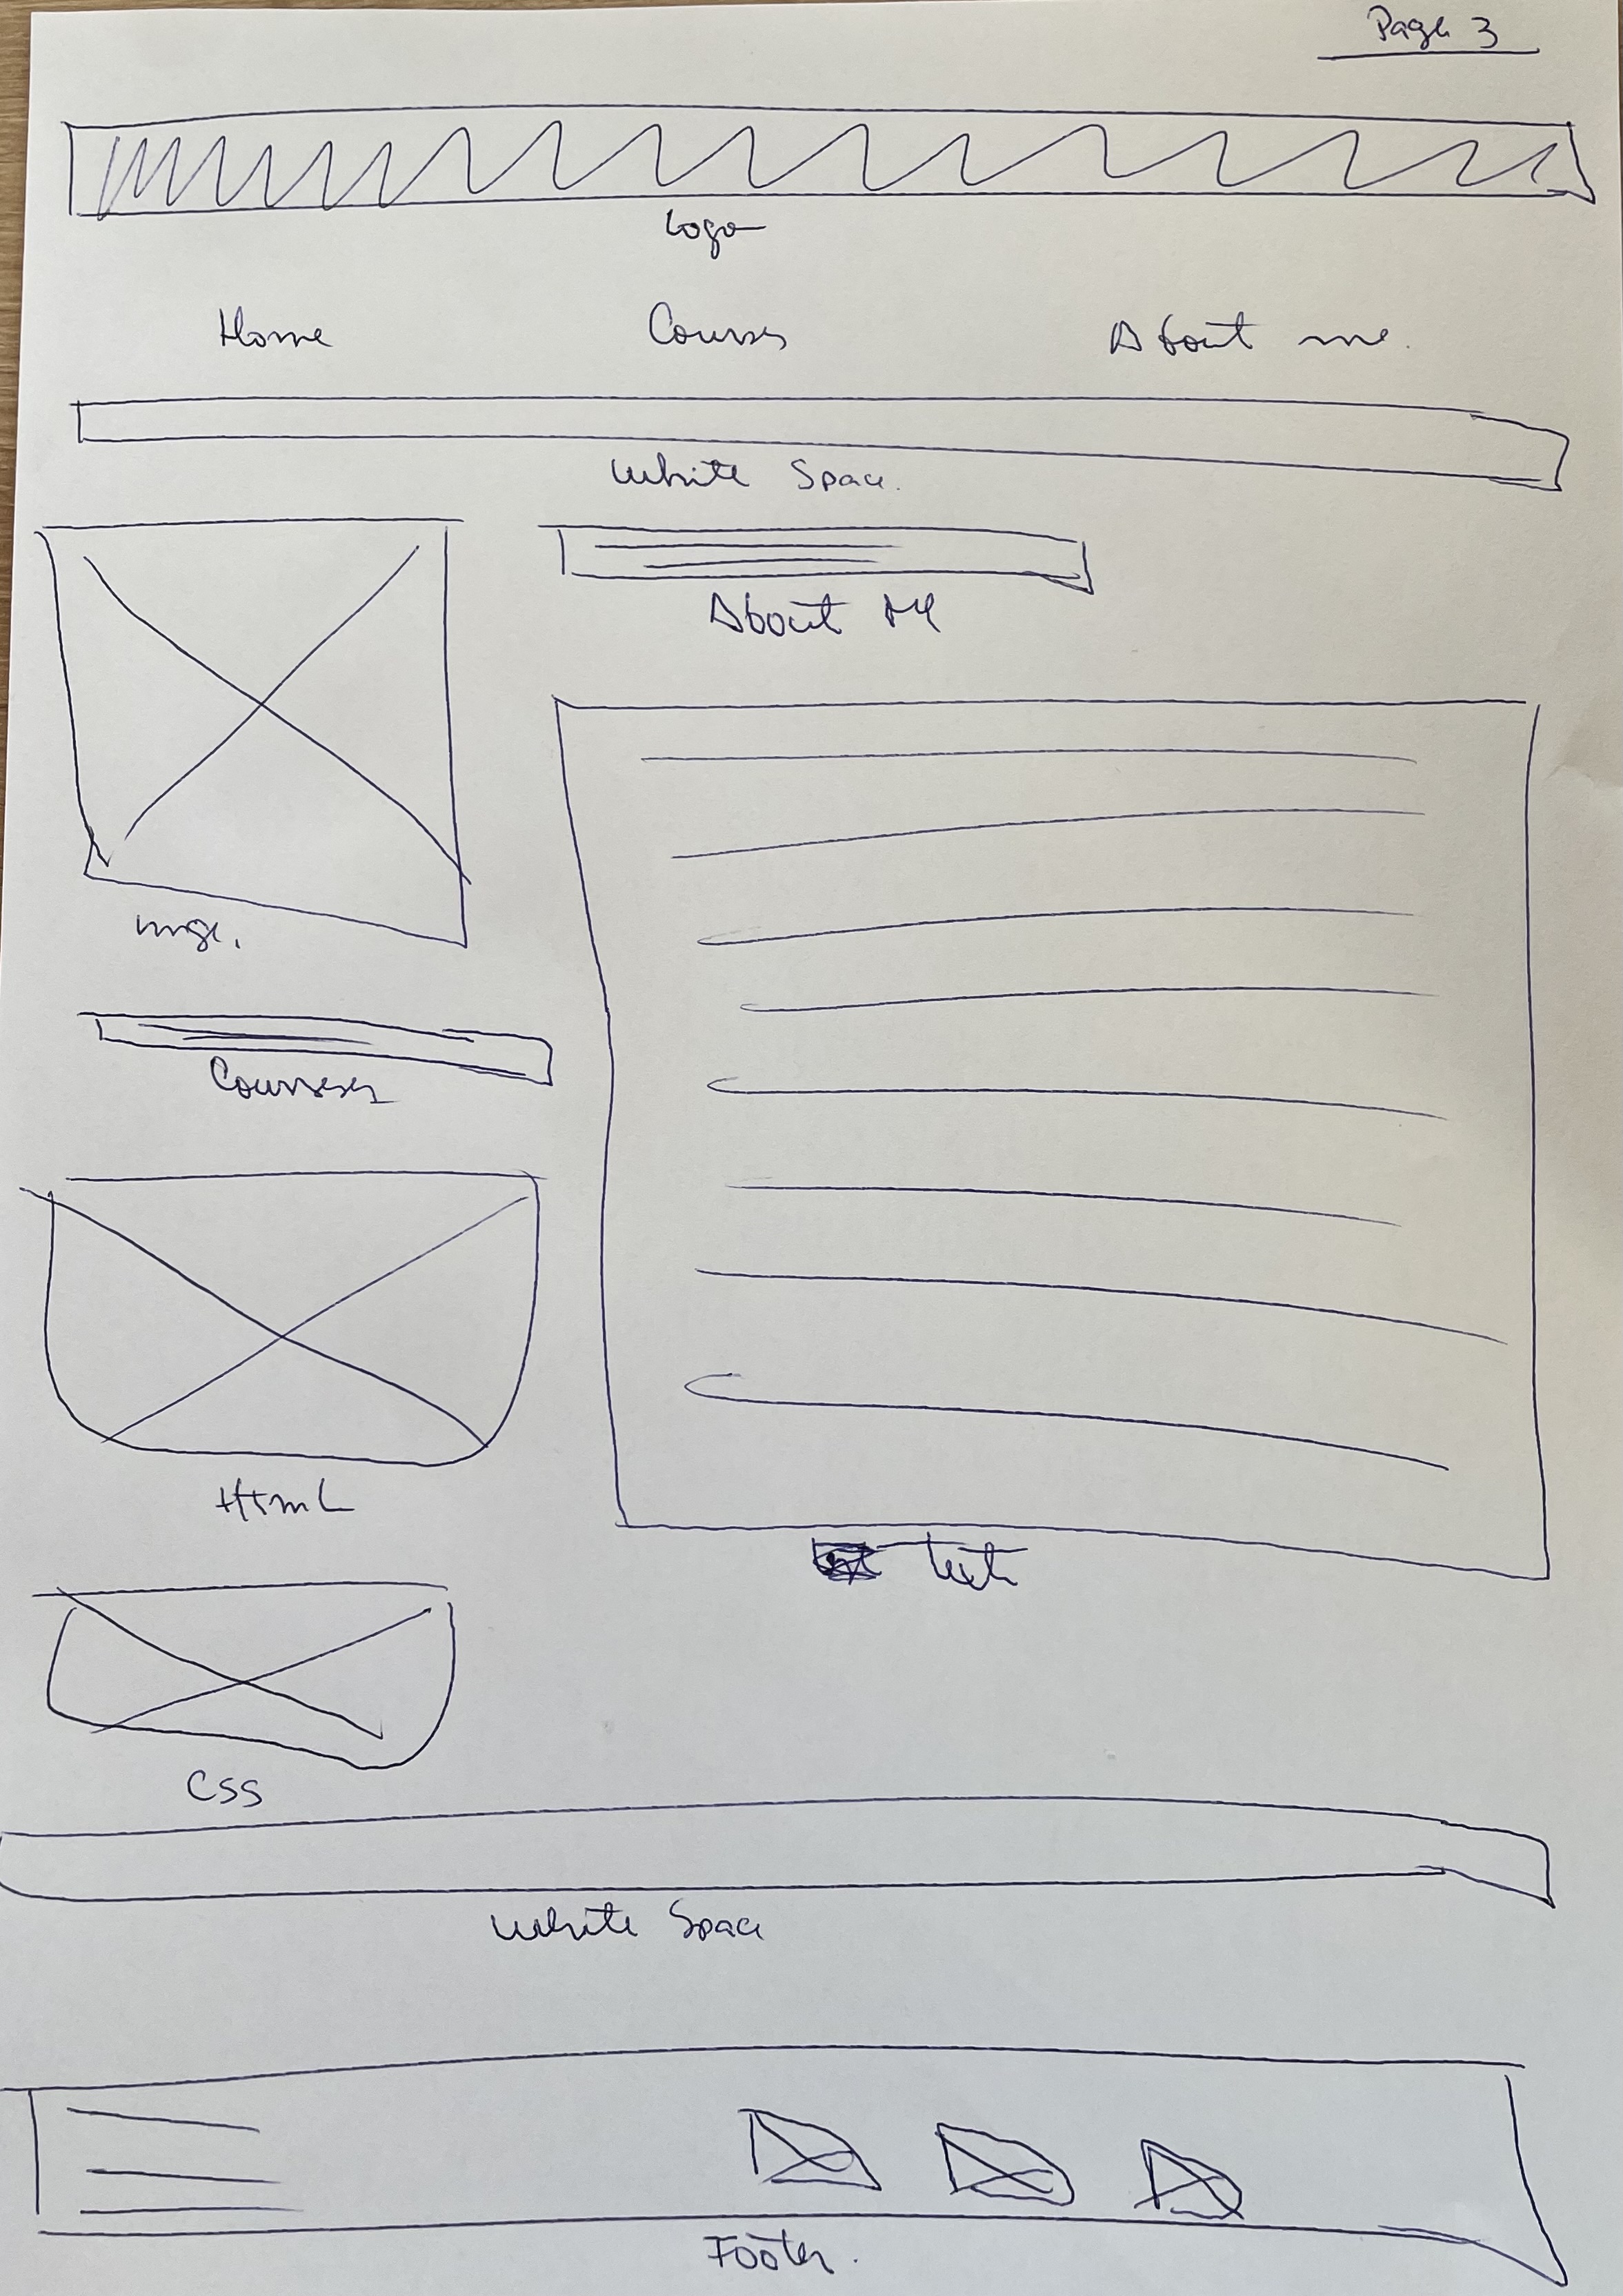 Page 3
Logo
Home Courses About me.
White Space.
About M
img.
Courses
Html
Text
CSS
White Space
Footer.